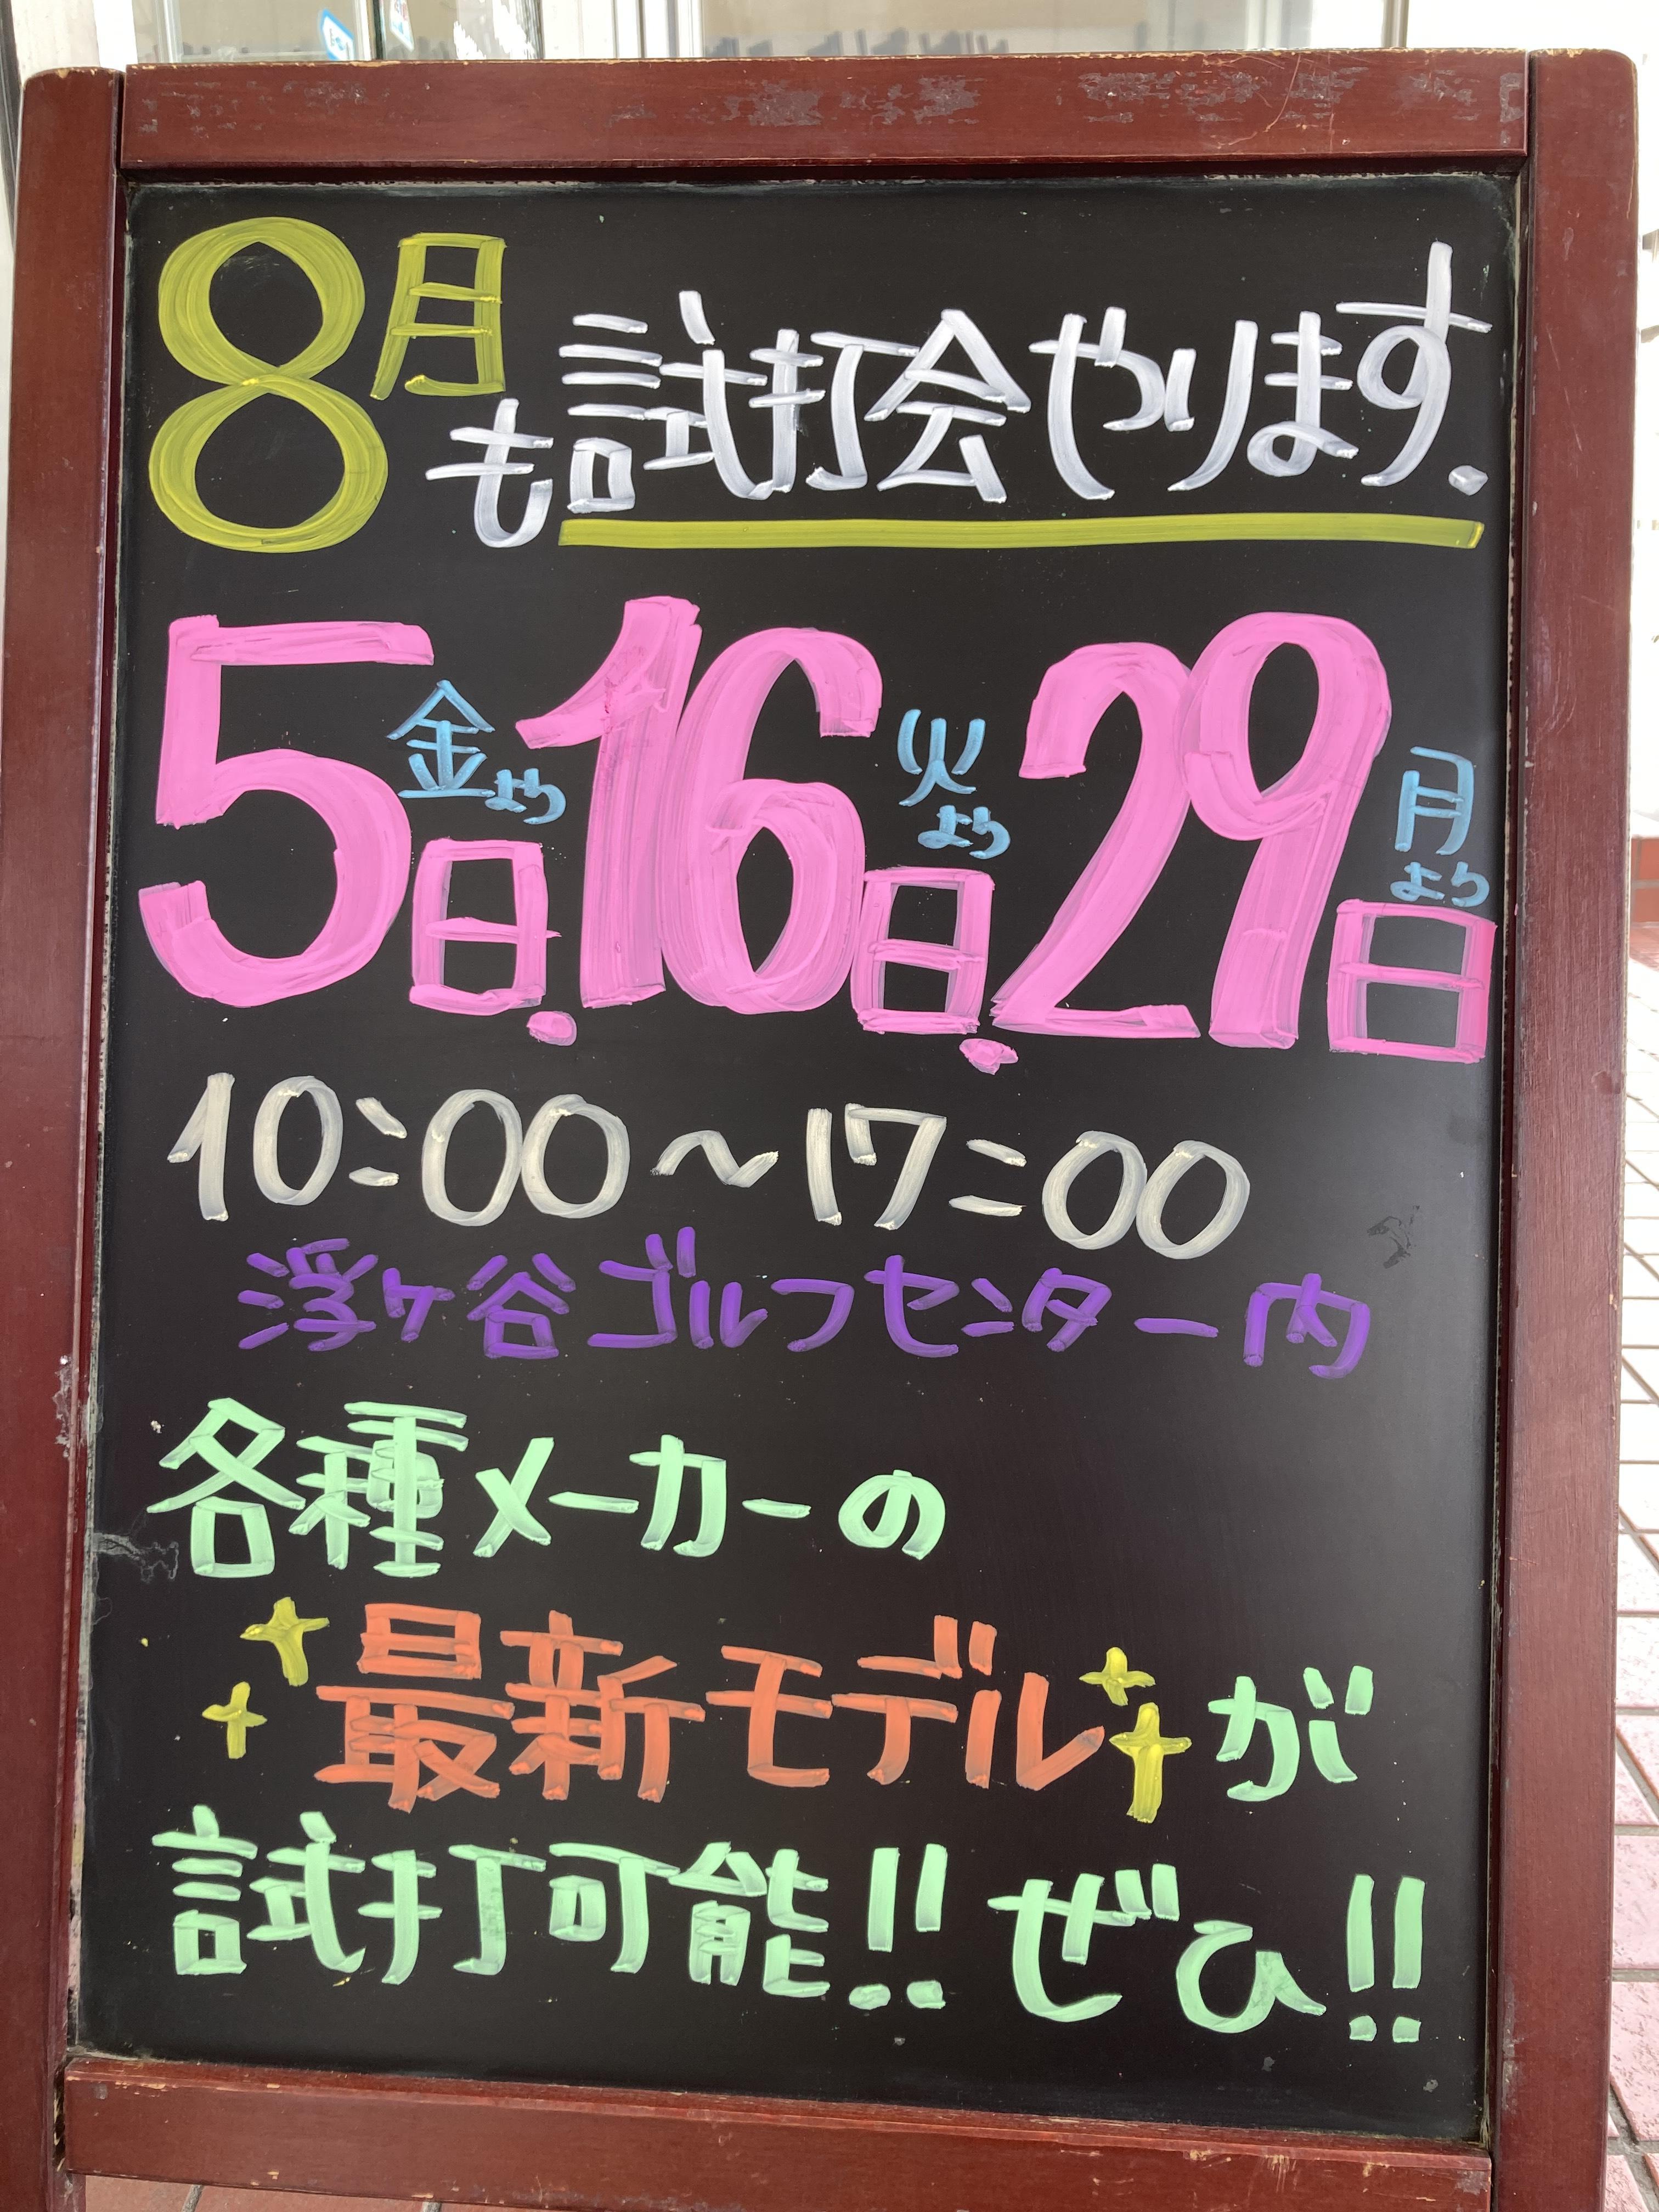 8月も試打会やります.
5日金より.16日火より.29日月より
10:00~17:00
浮ヶ谷ゴルフセンター内
各種メーカーの
最新モデルが
試打可能!!ぜひ!!